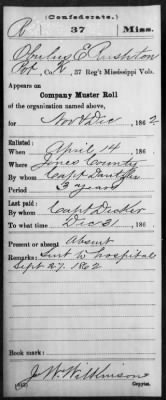 (Confederate.)
R 37 Miss.
E Rushton
Pvt, Co. K, 37 Reg't Mississippi Vols.
Appears on
Company Muster Roll
of the organization named above,
for Nov & Dec, 1862
Enlisted:
When April 14, 186
Where Jones County
By whom Capt
Period 3 years
Last paid:
By whom Capt Decker
To what time Dec 31, 186
Present or absent Absent
Remarks: Sent to hospital
Sept 27, 1862
Book mark:
J. W. Wilkinson
Copyist.